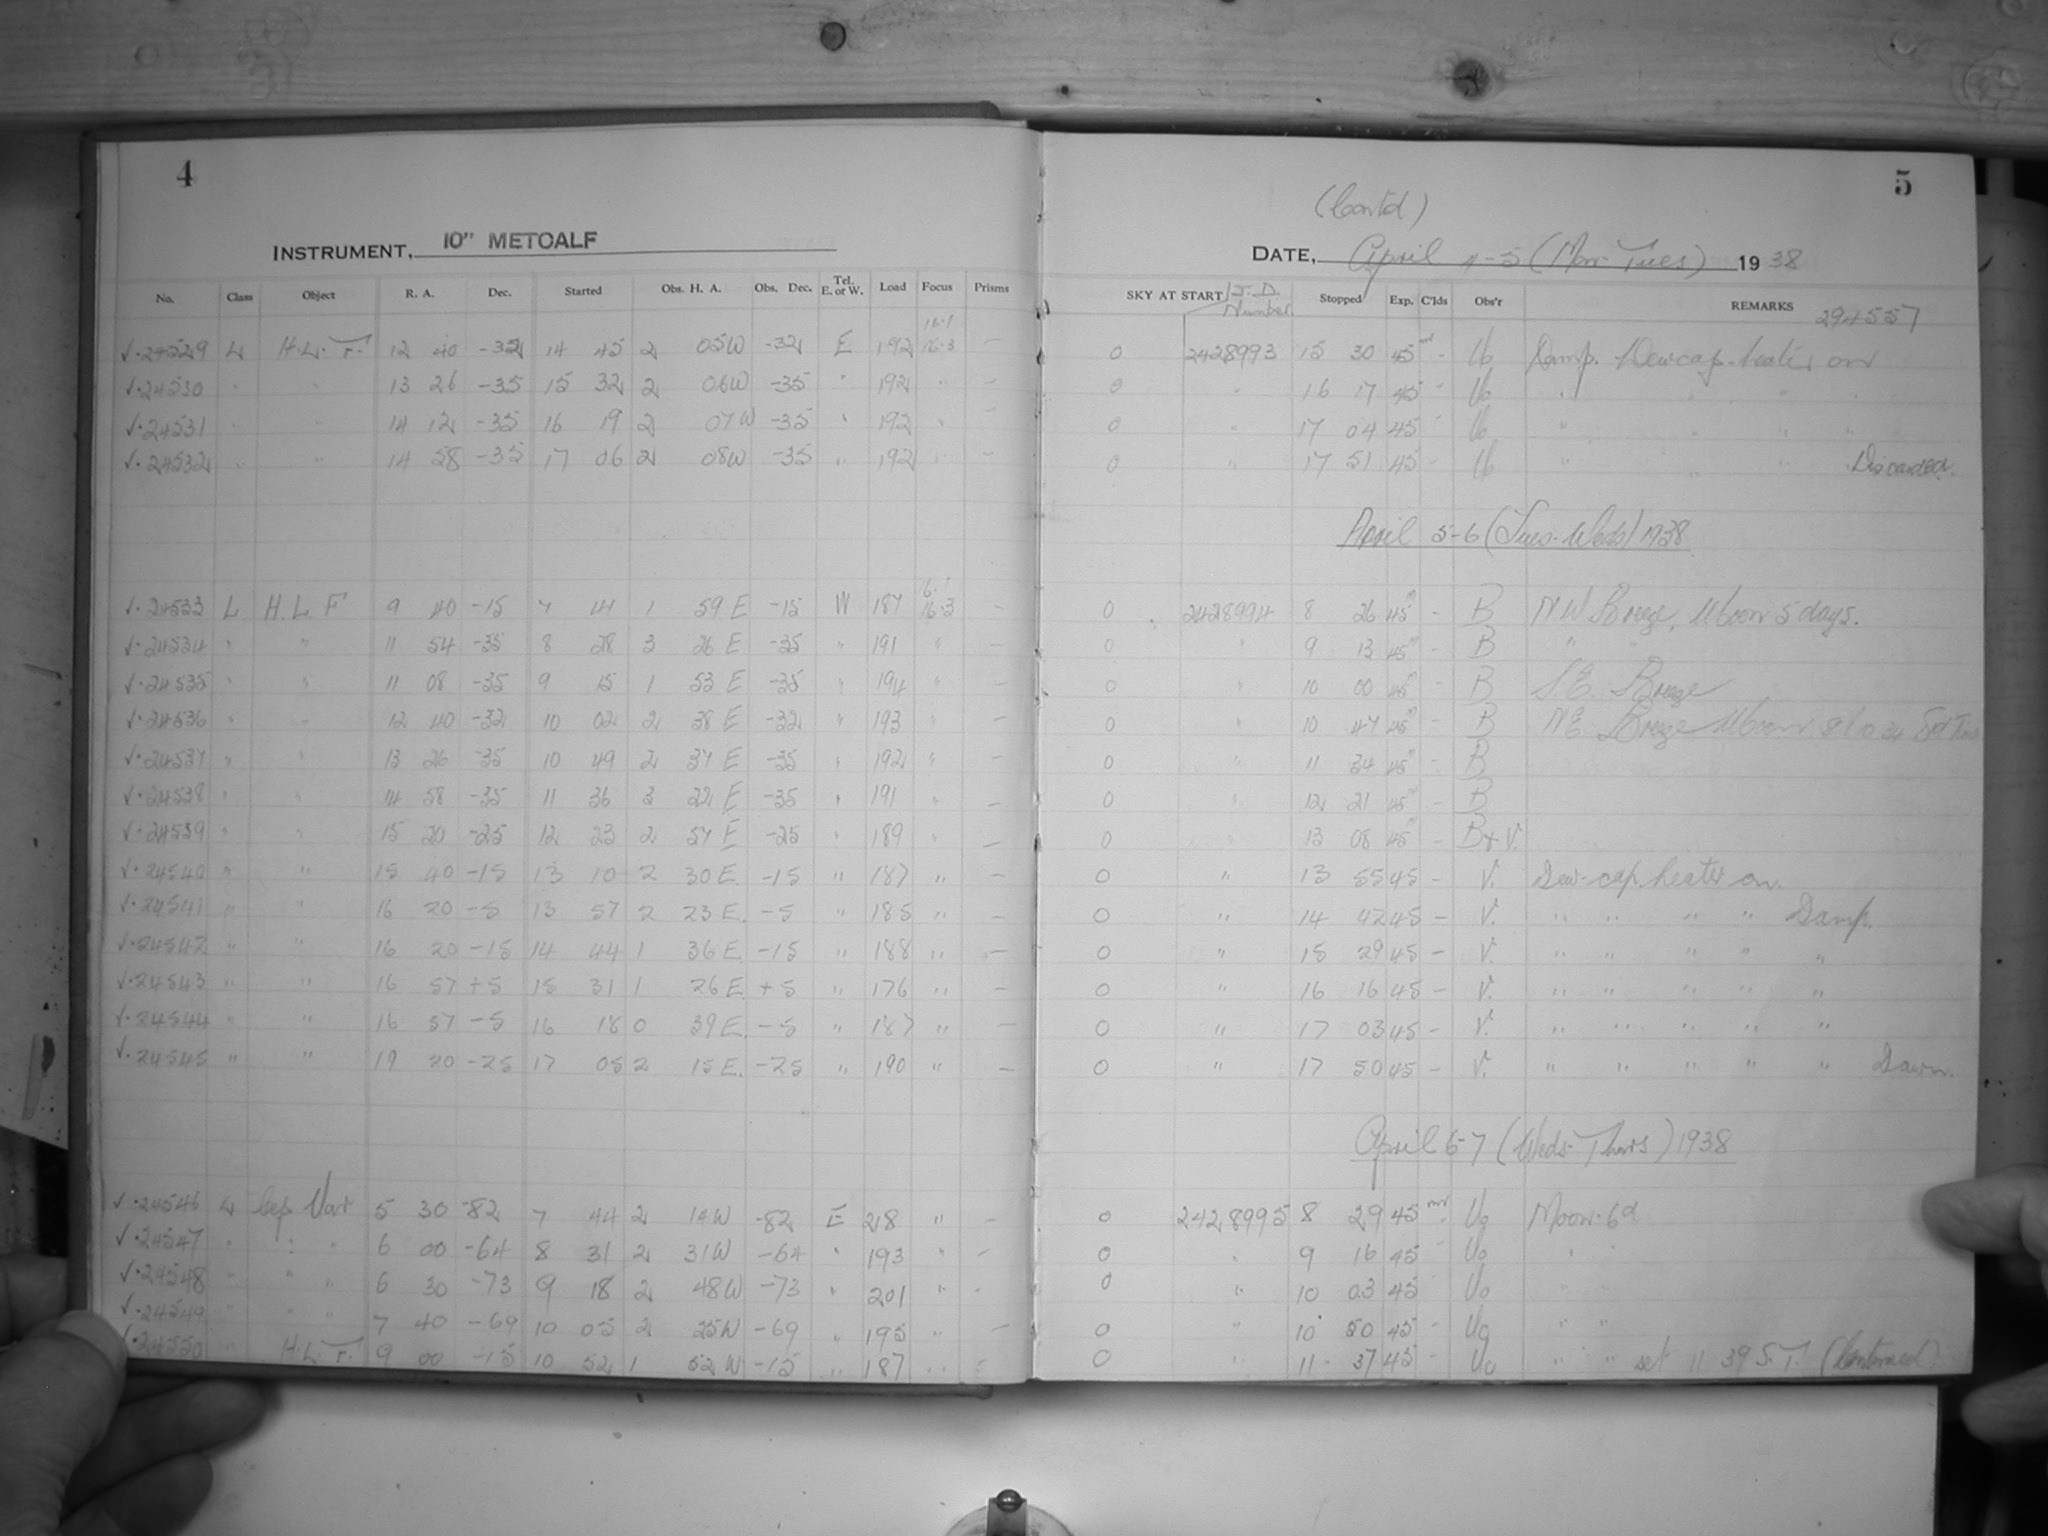 4
INSTRUMENT, 10" METCALF
No. Class Object R. A. Dec. Started Obs. H. A. Obs. Dec. Tel. E. or W. Load Focus Prisms
16.1
√·24529 L H.L.F. 12 40 -32 14 45 2 05W -32 E 192 16.3 –
√·24530 " " 13 26 -35 15 32 2 06W -35 " 192 " –
√·24531 " " 14 12 -35 16 19 2 07W -35 " 192 " –
√·24532 " " 14 58 -35 17 06 2 08W -35 " 192 " –
16.1
√·24533 L H.L.F 9 40 -15 7 41 1 59 E -15 W 187 16.3 –
√·24534 " " 11 54 -35 8 28 3 26 E -35 " 191 " –
√·24535 " " 11 08 -35 9 15 1 53 E -35 " 194 " –
√·24536 " " 12 40 -32 10 02 2 38 E -32 " 193 " –
√·24537 " " 13 26 -35 10 49 2 37 E -35 " 192 " –
√·24538 " " 14 58 -35 11 36 3 22 E -35 " 191 " –
√·24539 " " 15 20 -25 12 23 2 57 E -25 " 189 " –
√·24540 " " 15 40 -15 13 10 2 30 E. -15 " 187 " –
√·24541 " " 16 20 -5 13 57 2 23 E. -5 " 185 " –
√·24542 " " 16 20 -15 14 44 1 36 E. -15 " 188 " –
√·24543 " " 16 57 +5 15 31 1 26 E. +5 " 176 " –
√·24544 " " 16 57 -5 16 18 0 39 E. -5 " 187 " –
√·24545 " " 19 20 -25 17 05 2 15 E. -25 " 190 " –
√·24546 L Cep. Var 5 30 -82 7 44 2 14W -82 E 218 " –
√·24547 " " " 6 00 -64 8 31 2 31W -64 " 193 " –
√·24548 " " " 6 30 -73 9 18 2 48W -73 " 201 " –
√·24549 " " " 7 40 -69 10 05 2 25W -69 " 195 " –
√·24550 " H.L.F. 9 00 -15 10 52 1 52 W -15 " 187 "
5
(Cont'd)
DATE, April 4-5 (Mon-Tues) 1938
SKY AT START J.D. Number Stopped Exp. C'lds Obs'r REMARKS 294557
0 2428993 15 30 45m – Ub Damp. Dewcap-heater on
0 " 16 17 45 – Ub " " " "
0 " 17 04 45 – Ub " " " "
0 " 17 51 45 – Ub " " " Discarded.
April 5-6 (Tues-Weds) 1938
0 2428994 8 26 45m – B N W Breeze, Moon 5 days.
0 " 9 13 45m – B " "
0 " 10 00 45m – B S.E. Breeze
0 " 10 47 45m – B N E Breeze Moon
0 " 11 34 45m – B
0 " 12 21 45m – B
0 " 13 08 45m – B + V.
0 " 13 55 45 – V. Dew-cap heater on.
0 " 14 42 45 – V. " " " " Damp.
0 " 15 29 45 – V. " " " " "
0 " 16 16 45 – V. " " " " "
0 " 17 03 45 – V. " " " " "
0 " 17 50 45 – V. " " " " " Dawn.
April 6-7 (Weds-Thurs) 1938
0 2428995 8 29 45m – Uo Moon-6d
0 " 9 16 45 – Uo " "
0 " 10 03 45 – Uo " "
0 " 10 50 45 – Uo " "
0 " 11 37 45 – Uo " " set 11 39 S.T. (Continued)